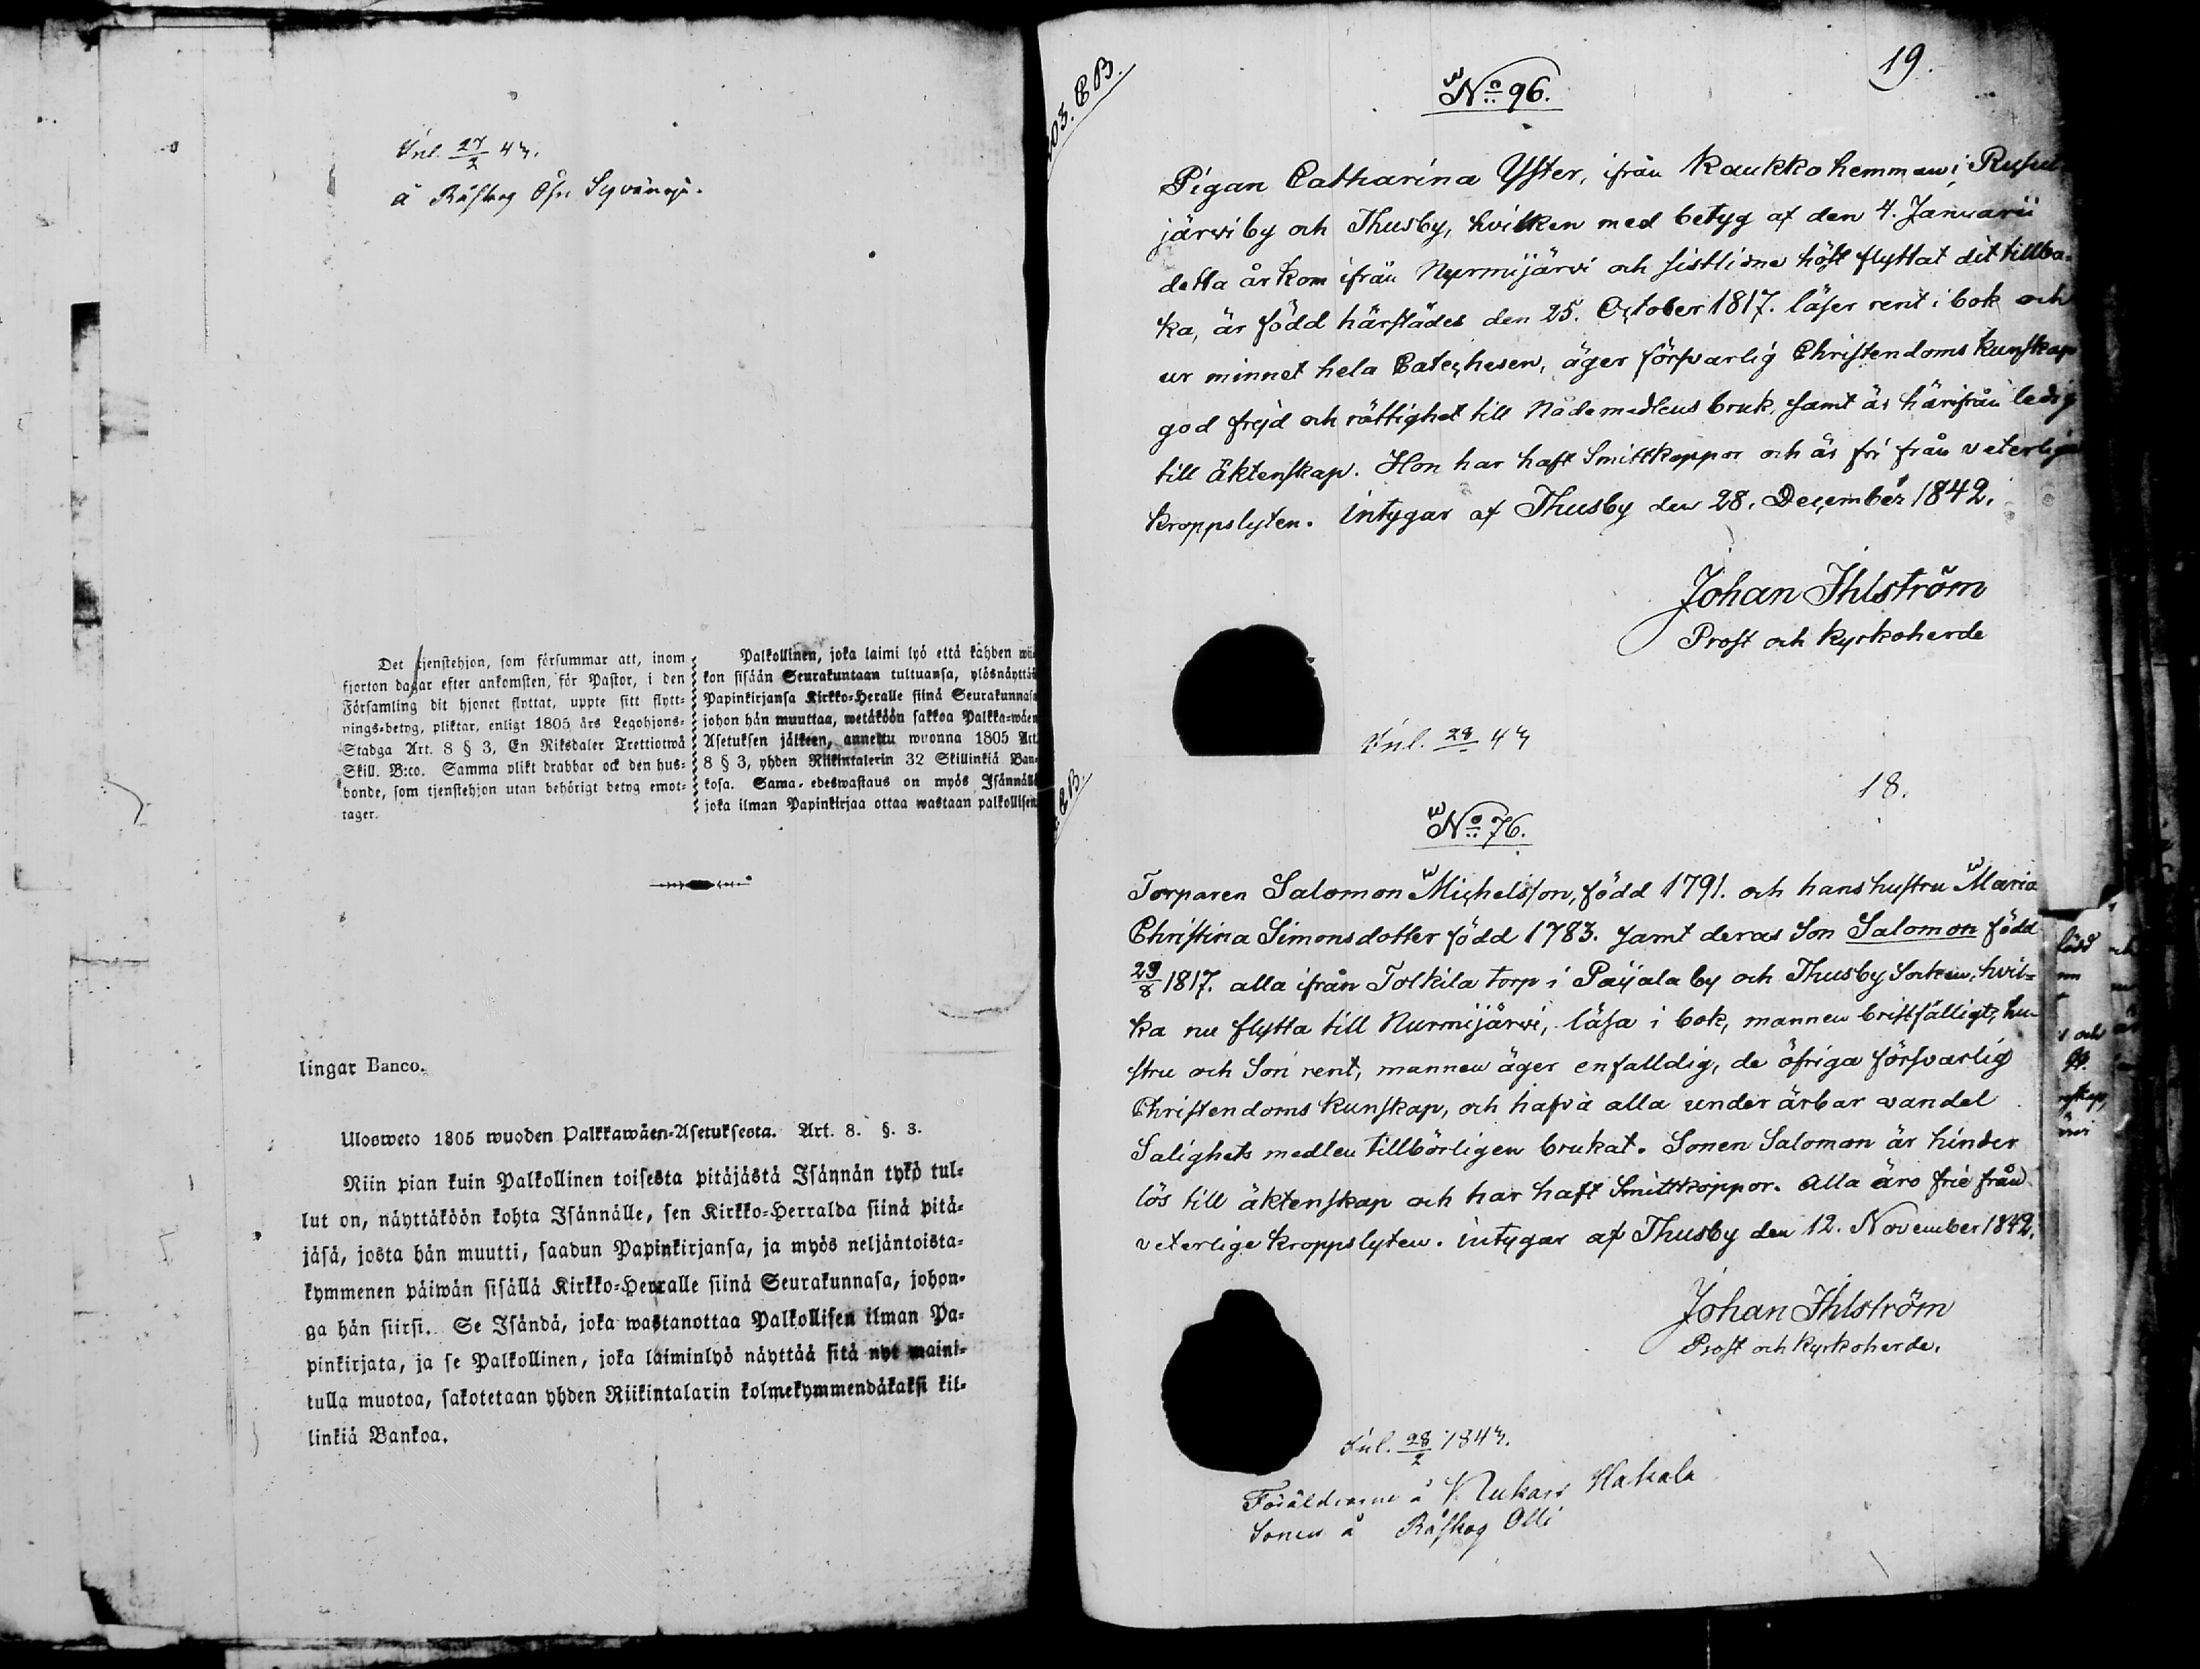 Inl. 27/2 43.
å Råskog Öfre
Det tjenstehjon, som försummar att, inom
fjorton dagar efter ankomsten, för Pastor, i den
Församling dit hjonet flyttat, uppte sitt flytt-
nings-betyg, pliktar, enligt 1805 års Legohjons-
Stadga Art. 8 § 3, En Riksdaler Trettiotwå
Skill. B:co. Samma plikt drabbar ock den hus-
bonde, som tjenstehjon utan behörigt betyg emot-
tager.
Palkollinen, joka laimi lyö että kahden wii
kon sisään Seurakuntaan tultuansa, ylösnäyttää
Papinkirjansa Kirkko-Heralle siinä Seurakunnasa
johon hän muuttaa, wetäköön sakkoa Palkka-wäen
Asetuksen jälkeen, annettu wuonna 1805 Art.
8 § 3, yhden Riikintalerin 32 Skillinkiä Ban-
kosa. Sama-edeswastaus on myös Isännällä
joka ilman Papinkirjaa ottaa wastaan palkollisen
lingar Banco.
Ulosweto 1805 wuoden Palkkawäen-Asetuksesta. Art. 8. §. 3.
Niin pian kuin Palkollinen toisesta pitäjästä Isännän tykö tul-
lut on, näyttäköön kohta Isännälle, sen Kirkko-Herralda siinä pitä-
jäsä, josta hän muutti, saadun Papinkirjansa, ja myös neljäntoista-
kymmenen päiwän sisällä Kirkko-Herralle siinä Seurakunnasa, johon-
ga hän siirsi. Se Isändä, joka wastanottaa Palkollisen ilman Pa-
pinkirjata, ja se Palkollinen, joka laiminlyö näyttää sitä nyt maini-
tulla muotoa, sakotetaan yhden Riikintalarin kolmekymmendäkaksi kil-
linkiä Bankoa.
203. C B.
19.
No 96.
Pigan Catharina Yster, ifrån Kaukko hemman i Rusut-
järvi by och Thusby, hvilken med betyg af den 4. Januarii
detta år kom ifrån Nurmijärvi och sistlidne höst flyttat dit tillba-
ka, är född härstädes den 25. October 1817. läser rent i bok och
ur minnet hela Catechesen, äger försvarlig Christendoms kunskap
god frejd och rättighet till Nådemedlens bruk, samt är härifrån ledig
till äktenskap. Hon har haft Smittkoppor och är fri från veterlige
kroppslyten. intygar af Thusby den 28. December 1842.
Johan Ihlström
Prost och kyrkoherde
Inl. 28 43
18.
C B.
No 76.
Torparen Salomon Michelsson, född 1791. och hans hustru Maria
Christina Simonsdotter född 1783. samt deras Son Salomon född
29/8 1817. alla ifrån Tolkila torp i Paijala by och Thusby Socken, hvil-
ka nu flytta till Nurmijärvi, läsa i bok, mannen bristfälligt, hu-
stru och Son rent, mannen äger enfalldig, de öfriga försvarlig
Christendoms kunskap, och hafva alla under ärbar vandel
Salighets medlen tillbörligen brukat. Sonen Salomon är hinder
lös till äktenskap och har haft Smittkoppor. Alla äro frie från
veterlige kroppslyten. intygar af Thusby den 12. November 1842.
Johan Ihlström
Prost och kyrkoherde.
Inl. 28/2 1843.
Föräldrarne å Nukari Hakala
Sonen å Råskog Olli